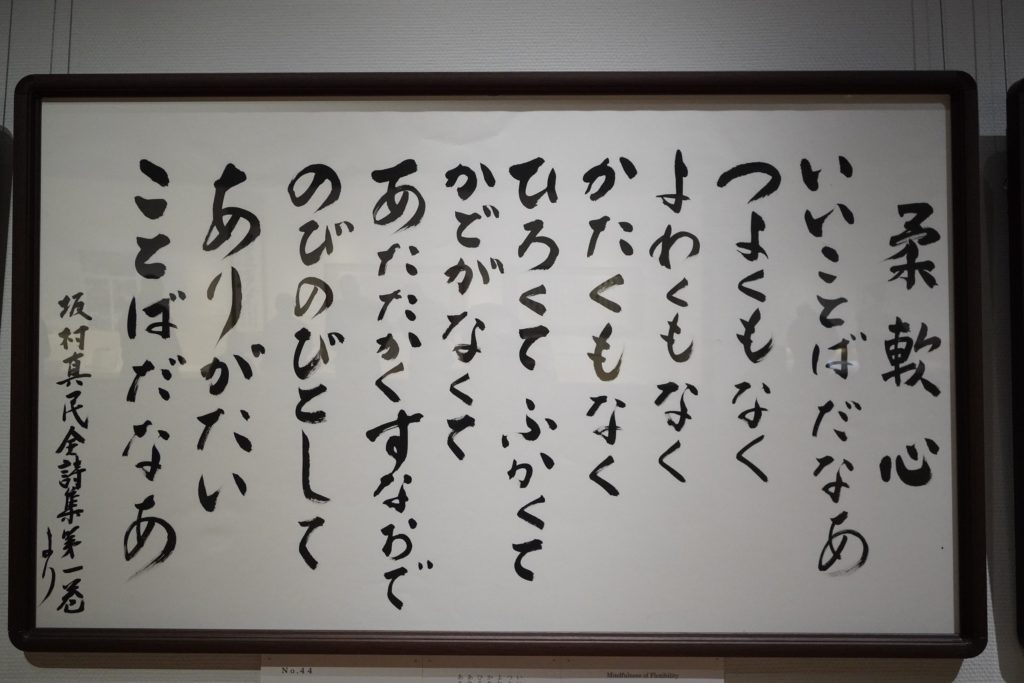 柔軟心
いいことばだなあ
つよくもなく
よわくもなく
かたくもなく
ひろくて ふかくて
かどがなくて
あたたかくすなおで
のびのびとして
ありがたい
ことばだなあ
坂村真民全詩集第一巻
より
No.44
Mindfulness of Flexibility